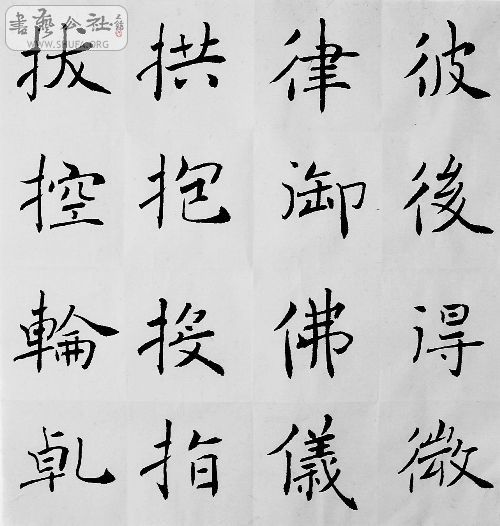 彼後得微
律御佛儀
拱抱投指
拔控輪乹
書藝公社
WWW.SHUFA.ORG